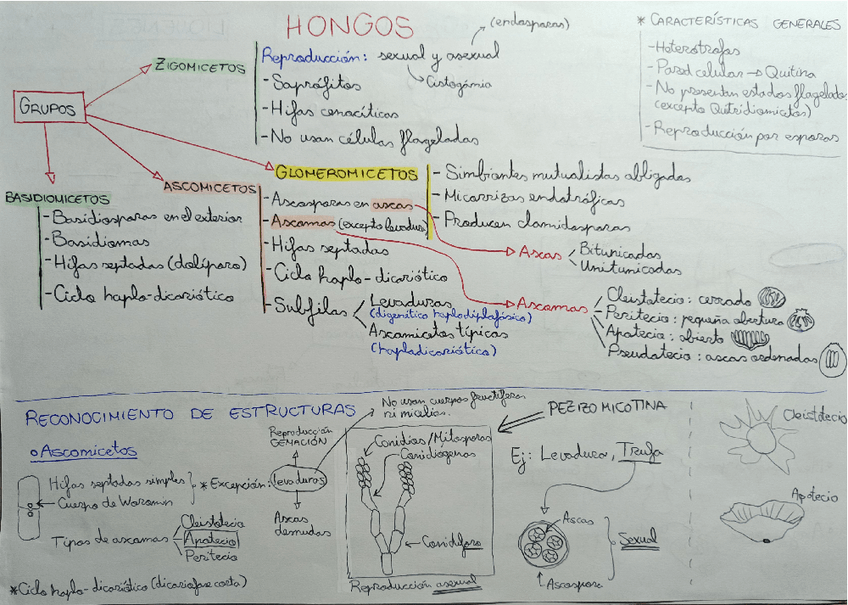 HONGOS
(endosporas)
* CARACTERÍSTICAS GENERALES
- Heterótrofas
- Pared celular → Quitina
- No presentan estados flagelados
(excepto Quitridiomicotas)
- Reproducción por esporas
GRUPOS
ZIGOMICETOS
Reproducción: sexual y asexual
Cistogamia
- Saprófitos
- Hifas cenocíticas
- No usan células flageladas
GLOMEROMICETOS
- Simbiontes mutualistas obligados
- Micorrizas endotróficas
- Producen clamidosporas
BASIDIOMICETOS
- Basidiosporas en el exterior
- Basidiomas
- Hifas septadas (dolíporo)
- Ciclo haplo-dicariótico
ASCOMICETOS
- Ascosporas en ascas
- Ascomas (excepto levadura)
- Hifas septadas
- Ciclo haplo-dicariótico
- Subfilos
Levaduras
(digenético haplodiplofásico)
Ascomicetos típicos
(haplodicariótico)
Ascas
Bitunicadas
Unitunicadas
Ascomas
Cleistotecio: cerrado
Peritecio: pequeña abertura
Apotecio: abierto
Pseudotecio: ascas ordenadas
RECONOCIMIENTO DE ESTRUCTURAS
Ascomicetos
Hifas septadas simples
Cuerpo de Woronin
* Excepción: levaduras
Reproducción
GEMACIÓN
No usan cuerpos fructíferos
ni micelios.
Ascas
desnudas
Tipos de ascomas
Cleistotecio
Apotecio
Peritecio
* Ciclo haplo-dicariótico (dicariofase corta)
Conidios/Mitosporas
Conidiógenas
Conidióforo
Reproducción asexual
PEZIZOMICOTINA
Ej: Levadura, Trufa
Ascas
Sexual
Ascospora
Cleistotecio
Apotecio